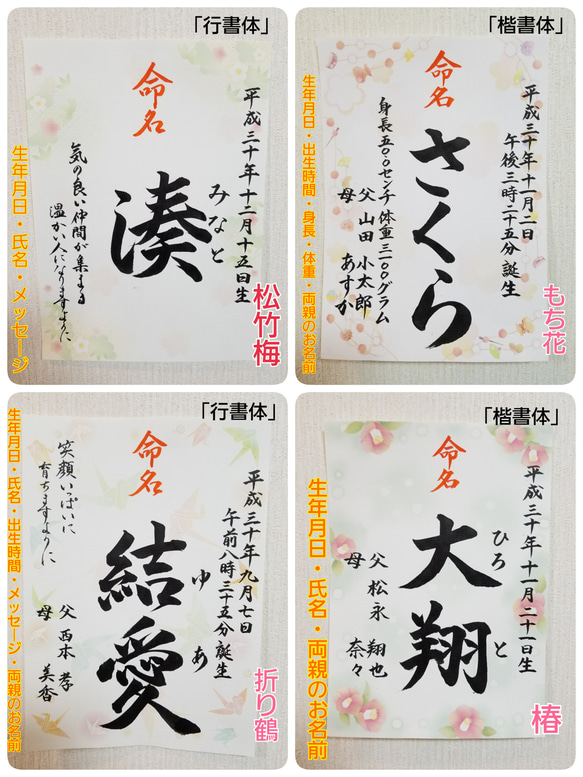 「行書体」
命名
平成三十年十二月十五日生
みなと
湊
気の良い仲間が集まる
温かい人になりますように
生年月日・氏名・メッセージ
松竹梅
「楷書体」
命名
平成三十年十一月二日
午後三時二十五分誕生
さくら
身長五〇.〇センチ 体重三一〇〇グラム
父 山田 小太郎
母 あすか
生年月日・出生時間・身長・体重・両親のお名前
もち花
「行書体」
命名
平成三十年九月七日
午前八時三十五分誕生
ゆあ
結愛
笑顔いっぱいに
育ちますように
父 西本 孝
母 美香
生年月日・氏名・出生時間・メッセージ・両親のお名前
折り鶴
「楷書体」
命名
平成三十年十一月二十一日生
ひろと
大翔
父 松永 翔也
母 奈々
生年月日・氏名・両親のお名前
椿